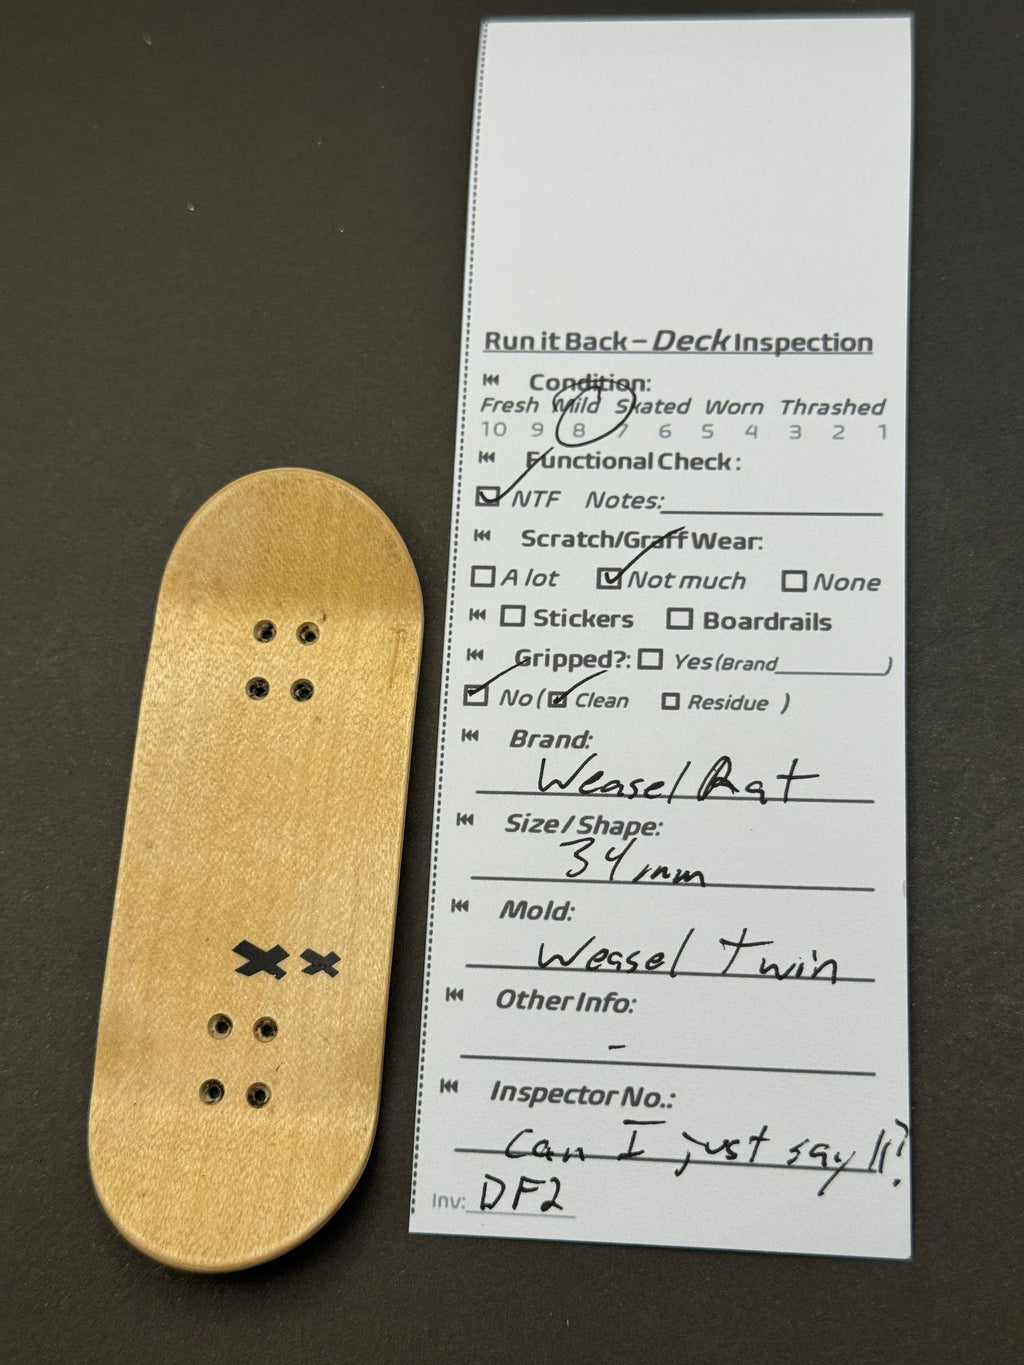 Run it Back – Deck Inspection
Condition:
Fresh Mild Skated Worn Thrashed
10 9 8 7 6 5 4 3 2 1
Functional Check:
NTF Notes:
Scratch/Graff Wear:
A lot Not much None
Stickers Boardrails
Gripped?: Yes (Brand )
No ( Clean Residue )
Brand:
Weasel Rat
Size/Shape:
34mm
Mold:
Weasel Twin
Other Info:
-
Inspector No.:
Can I just say 11?
Inv: DF2